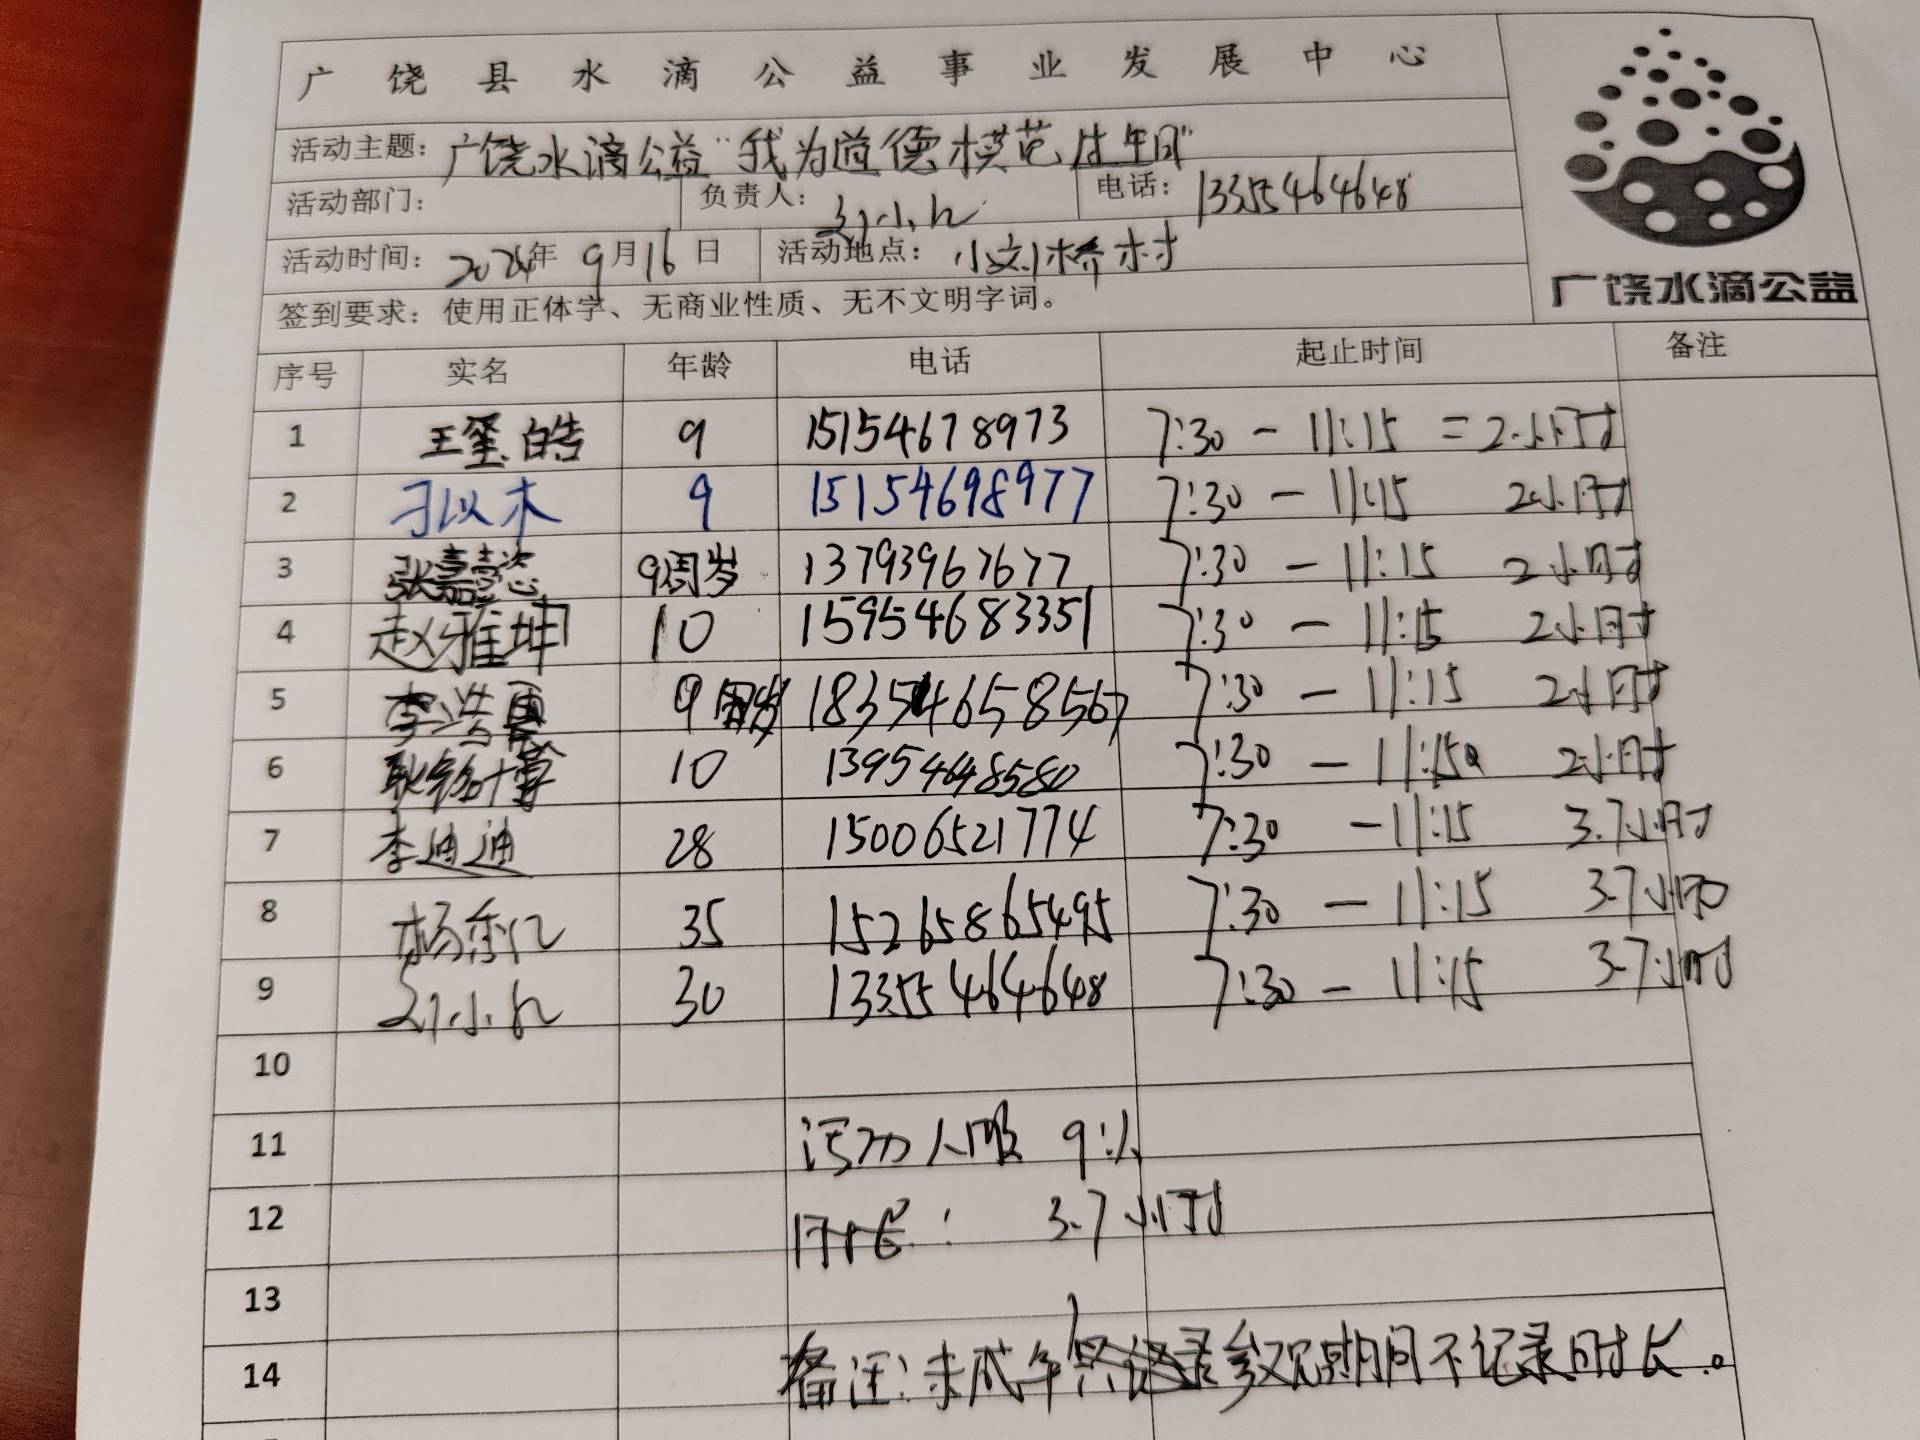 广饶县水滴公益事业发展中心
活动主题：广饶水滴公益"我为道德模范过生日"
活动部门： 负责人：刘小红 电话：13355464648
活动时间：2024年9月16日 活动地点：小刘桥村
签到要求：使用正体字、无商业性质、无不文明字词。
广饶水滴公益
序号 实名 年龄 电话 起止时间 备注
1 王玺皓 9 15154678973 7:30 - 11:15 = 2小时
2 刁以木 9 15154698977 7:30 - 11:15 2小时
3 张嘉懿 9周岁 13793967677 7:30 - 11:15 2小时
4 赵雅坤 10 15954683351 7:30 - 11:15 2小时
5 李浩 9周岁 18354658567 7:30 - 11:15 2小时
6 耿铭博 10 13954648580 7:30 - 11:15 2小时
7 李迪迪 28 15006521774 7:30 - 11:15 3.7小时
8 杨 35 15265865495 7:30 - 11:15 3.7小时
9 刘小红 30 13355464648 7:30 - 11:15 3.7小时
10
11 活动人员 9人
12 时长： 3.7小时
13
14 备注：未成年参观期间不记录时长。